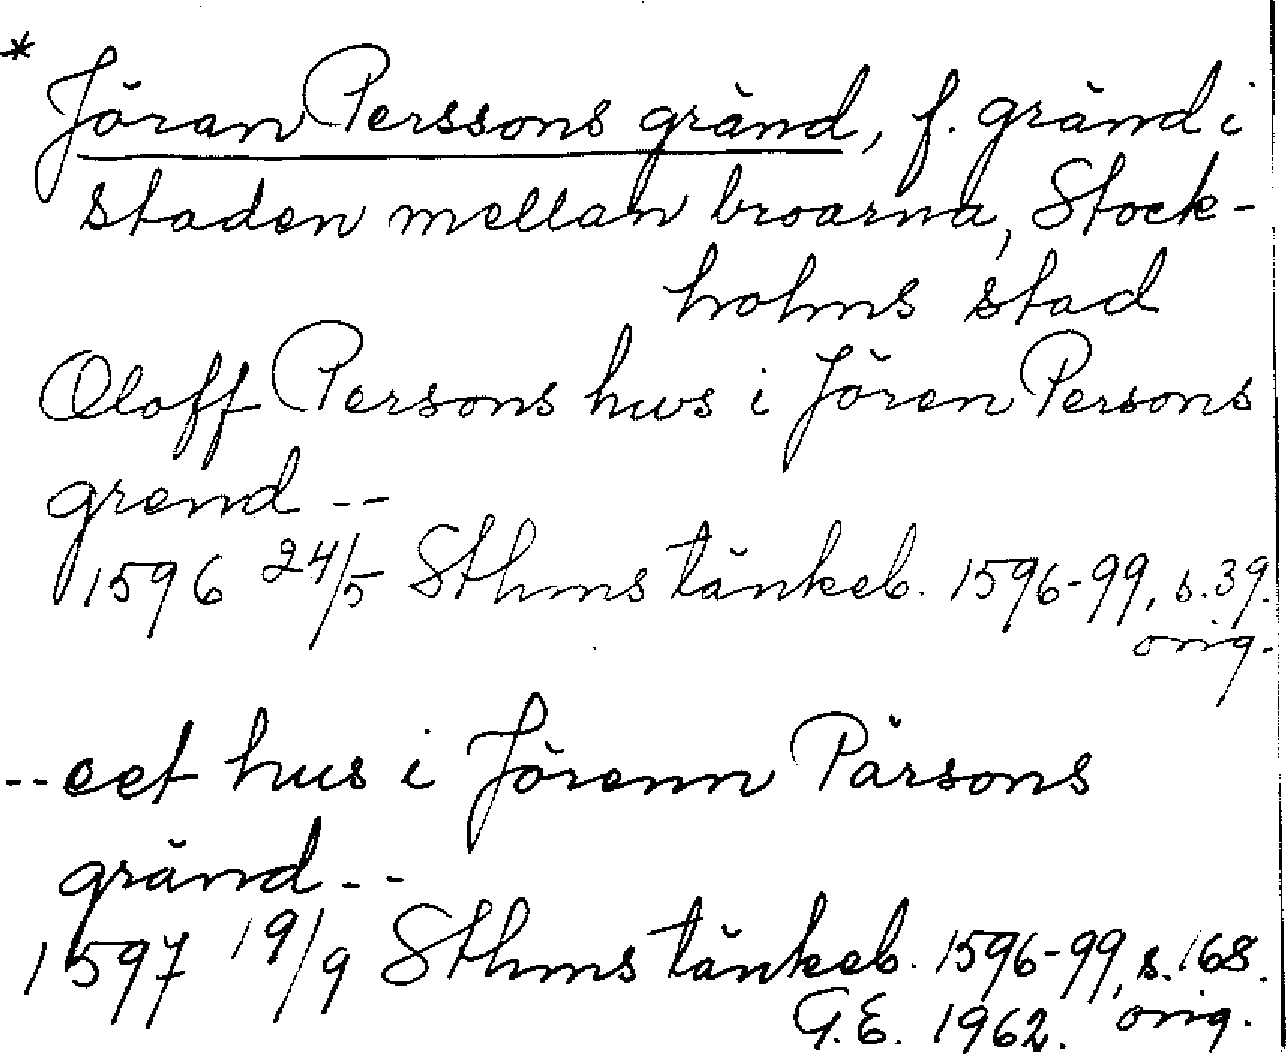 * Jöran Perssons gränd, f. gränd i
staden mellan broarna, Stock-
holms stad
Oloff Persons hus i Jören Persons
grend --
1596 24/5 Sthms tänkeb. 1596-99, s. 39.
orig.
-- eet hus i Jörenn Pärsons
gränd --
1597 19/9 Sthms tänkeb. 1596-99, s. 168.
G.E. 1962. orig.